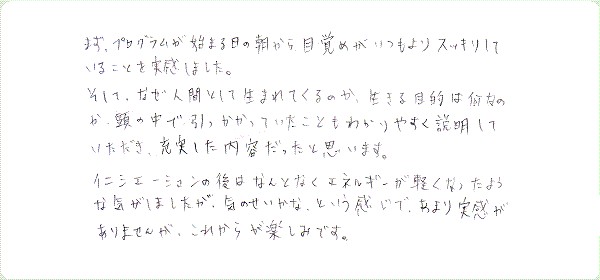 まず、プログラムが始まる日の朝から目覚めがいつもよりスッキリして
いることを実感しました。
そして、なぜ人間として生まれてくるのか、生きる目的は何なの
か、頭の中で引っかかっていたこともわかりやすく説明して
いただき、充実した内容だったと思います。
イニシエーションの後はなんとなくエネルギーが軽くなったよう
な気がしましたが、気のせいかな、という感じで、あまり実感が
ありませんが、これからが楽しみです。